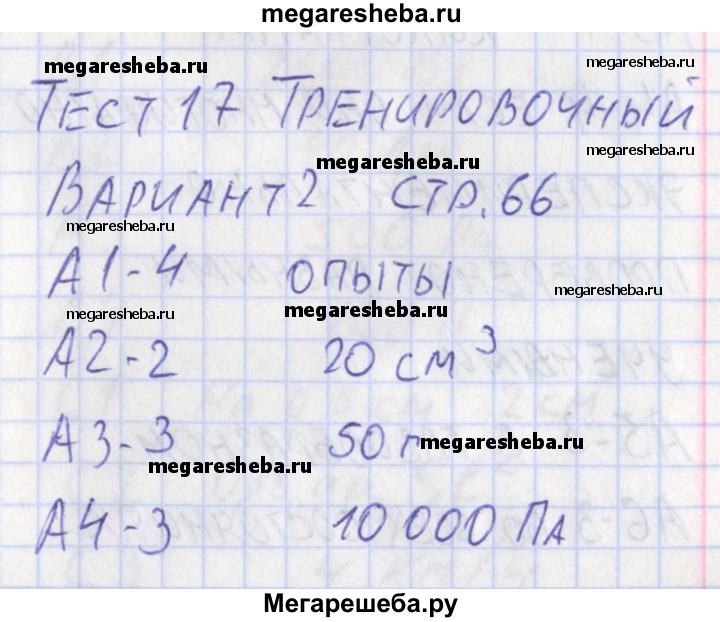 megaresheba.ru
megaresheba.ru megaresheba.ru
Тест 17 Тренировочный
megaresheba.ru megaresheba.ru
Вариант 2 стр. 66
megaresheba.ru
А1-4 опыты megaresheba.ru
megaresheba.ru megaresheba.ru
А2-2 20 см³
А3-3 50 г megaresheba.ru
megaresheba.ru
А4-3 10 000 Па
Мегарешеба.ру